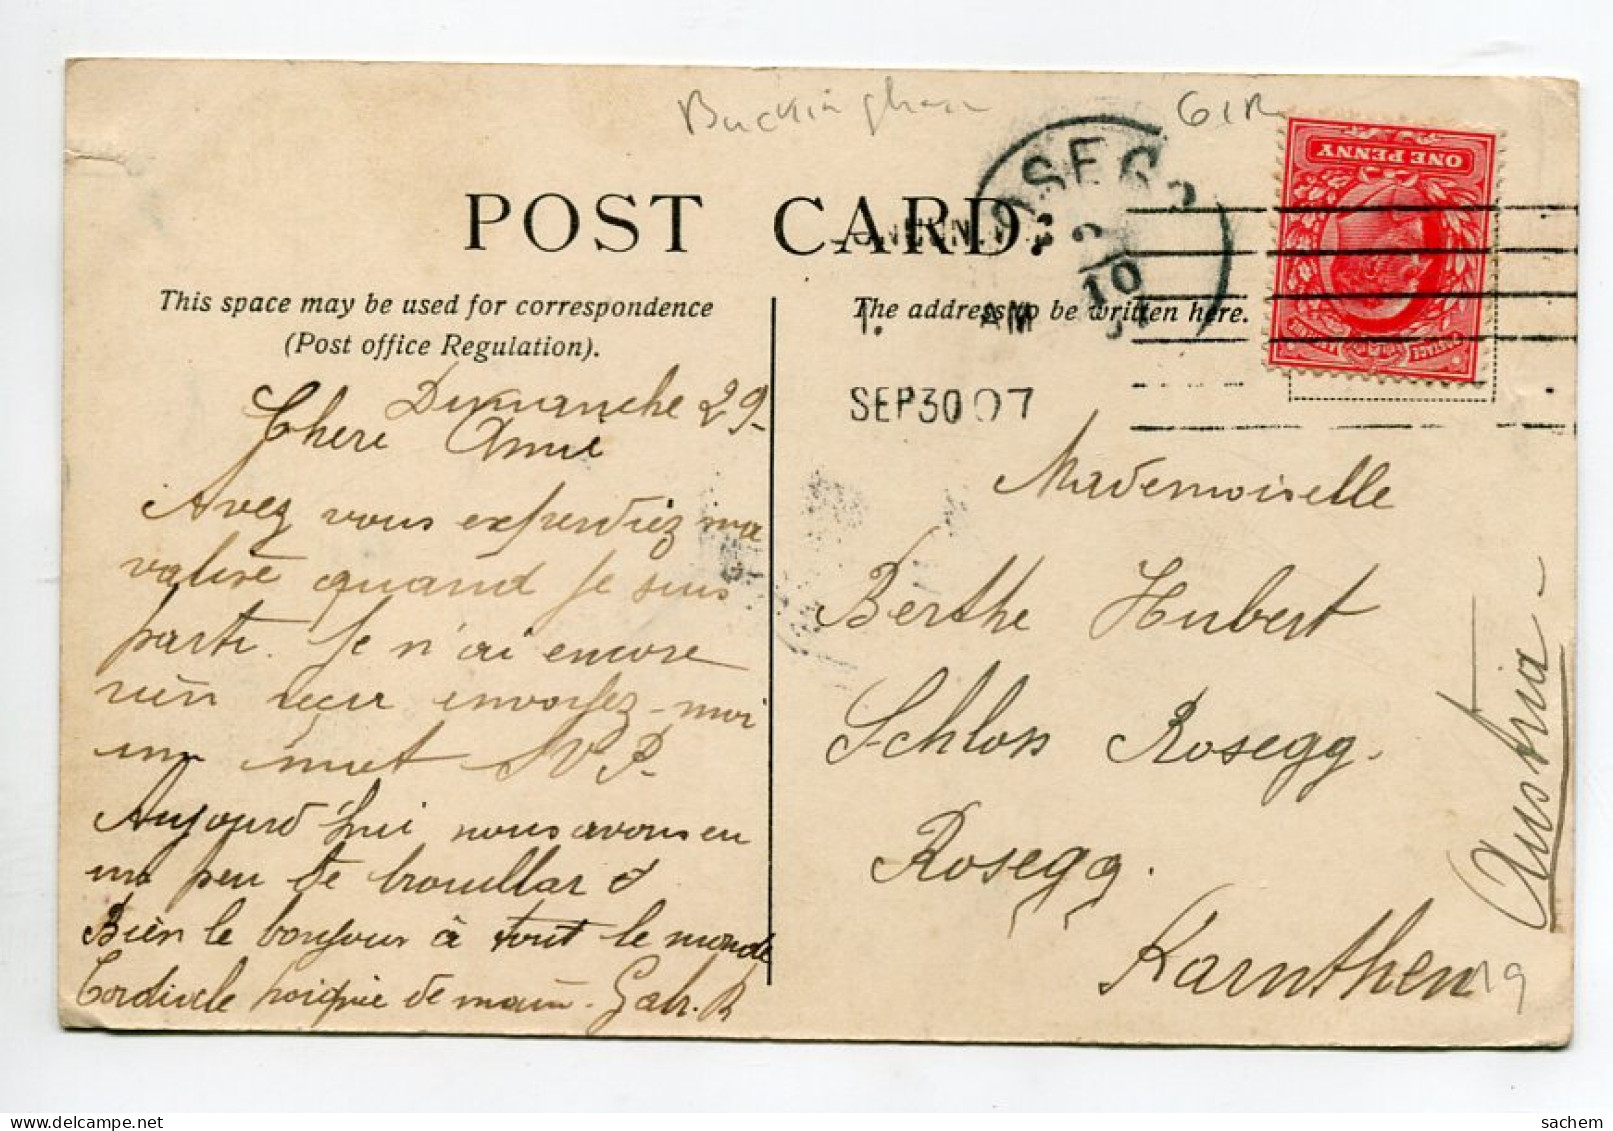 Buckingham
POST CARD.
ROSEGG
2
10
07
ONE PENNY
This space may be used for correspondence
(Post office Regulation).
The address to be written here.
1. AM
SEP 30 07
Dimanche 29-
Chere Amie
Avez vous experdiez ma
valise quand je suis
parti. Je n'ai encore
rien reçu envoyez-moi
un mot S V P-
Aujourd'hui nous avons eu
un peu de brouillard
Bien le bonjour à tout le monde
Cordiale poignée de main - Gabr. R
Mademoiselle
Berthe Hubert
Schloss Rosegg.
Rosegg.
Karnthen
Austria -
sachem